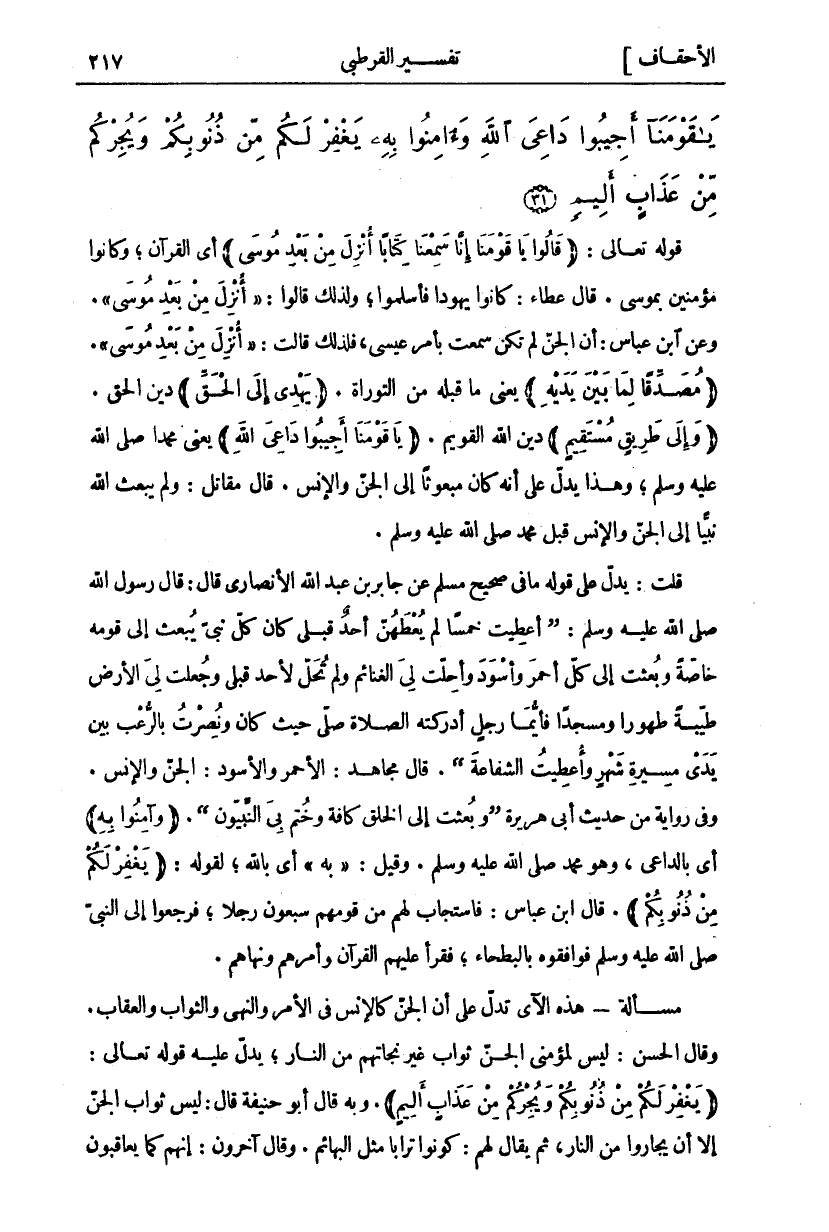 الأحقـاف ] تفســـير القرطبى ٢١٧
يَـٰقَوْمَنَآ أَجِيبُوا دَاعِىَ ٱللَّهِ وَءَامِنُوا بِهِۦ يَغْفِرْ لَـكُم مِّن ذُنُوبِكُمْ وَيُجِرْكُم
مِّنْ عَذَابٍ أَلِيـمٍ ﴿٣١﴾
قوله تعـالى : ﴿ قَالُوا يَا قَوْمَنَا إِنَّا سَمِعْنَا كِتَابًا أُنْزِلَ مِنْ بَعْدِ مُوسَى ﴾ أى القرآن ؛ وكانوا
مؤمنين بموسى . قال عطاء : كانوا يهودا فأسلموا؛ ولذلك قالوا : « أُنْزِلَ مِنْ بَعْدِ مُوسَى» .
وعن آبن عباس : أن الجنّ لم تكن سمعت بأمر عيسى، فلذلك قالت : « أُنْزِلَ مِنْ بَعْدِ مُوسَى» .
﴿ مُصَـدِّقًا لِمَا بَيْنَ يَدَيْهِ ﴾ يعنى ما قبله من التوراة . ﴿ يَهْدِى إِلَى الْحَقِّ ﴾ دين الحق .
﴿ وَإِلَى طَرِيقٍ مُسْتَقِيمٍ ﴾ دين الله القويم . ﴿ يَا قَوْمَنَا أَجِيبُوا دَاعِىَ اللهِ ﴾ يعنى محمدا صلى الله
عليه وسلم ؛ وهـذا يدلّ على أنه كان مبعوثًا إلى الجنّ والإنس . قال مقاتل : ولم يبعث الله
نبيًّا إلى الجنّ والإنس قبل محمد صلى الله عليه وسلم .
قلت : يدلّ على قوله ما فى صحيح مسلم عن جابر بن عبد الله الأنصارى قال : قال رسول الله
صلى الله عليـه وسلم : ” أعطِيت خمسًا لم يُعْطَهُنّ أحدٌ قبـلى كان كلّ نبىّ يُبعث إلى قومه
خاصّةً وبُعثت إلى كلّ أحمرَ وأسْوَدَ وأحِلّت لِىَ الغنائم ولم تُحَلّ لأحد قبلى وجُعلت لِىَ الأرض
طيّبـةً طهورا ومسجدًا فأيُّمَـا رجلٍ أدركته الصـلاة صلّى حيث كان ونُصِرْتُ بالرُّعْب بين
يَدَىْ مسِـيرةِ شَهْرٍ وأُعطِيتُ الشفاعةَ “ . قال مجاهـد : الأحمر والأسود : الجنّ والإنس .
وفى رواية من حديث أبى هريرة ”وبُعثت إلى الخلق كافة وخُتم بِىَ النَّبِيّون “ . ﴿ وَآمِنُوا بِـهِ﴾
أى بالداعى ، وهو محمد صلى الله عليه وسلم . وقيل : « به » أى بالله ؛ لقوله : ﴿ يَغْفِرْ لَكُمْ
مِنْ ذُنُوبِكُمْ ﴾ . قال ابن عباس : فاستجاب لهم من قومهم سبعون رجلا ؛ فرجعوا إلى النبىّ
صلى الله عليه وسلم فوافقوه بالبطحاء ؛ فقرأ عليهم القرآن وأمرهم ونهاهم .
مســألة — هذه الآى تدلّ على أن الجنّ كالإنس فى الأمر والنهى والثواب والعقاب .
وقال الحسن : ليس لمؤمنى الجـنّ ثواب غير نجاتهم من النـار ؛ يدلّ عليـه قوله تعـالى :
﴿ يَغْفِرْ لَكُمْ مِنْ ذُنُوبِكُمْ وَيُجِرْكُمْ مِنْ عَذَابٍ أَلِيمٍ﴾ . وبه قال أبو حنيفة قال : ليس ثواب الجنّ
إلا أن يجاروا من النار، ثم يقال لهم : كونوا ترابا مثل البهائم . وقال آخرون : إنهم كما يعاقبون